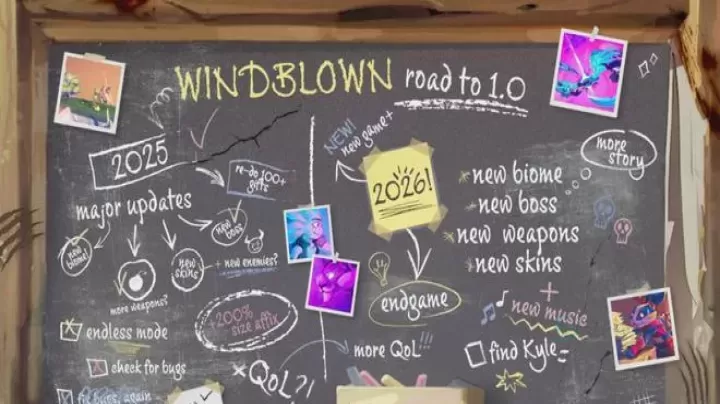 WINDBLOWN road to 1.0
2025
major updates
re-do 100+
gifts
new biome!
more weapons?
new skins
new boss
+ new enemies?
200%
size affix
endless mode
check for bugs
fix bugs, again
QoL?!
NEW!
new game+
2026!
endgame
more QoL!!!
more
story
new biome
new boss
new weapons
new skins
+
new music
find Kyle